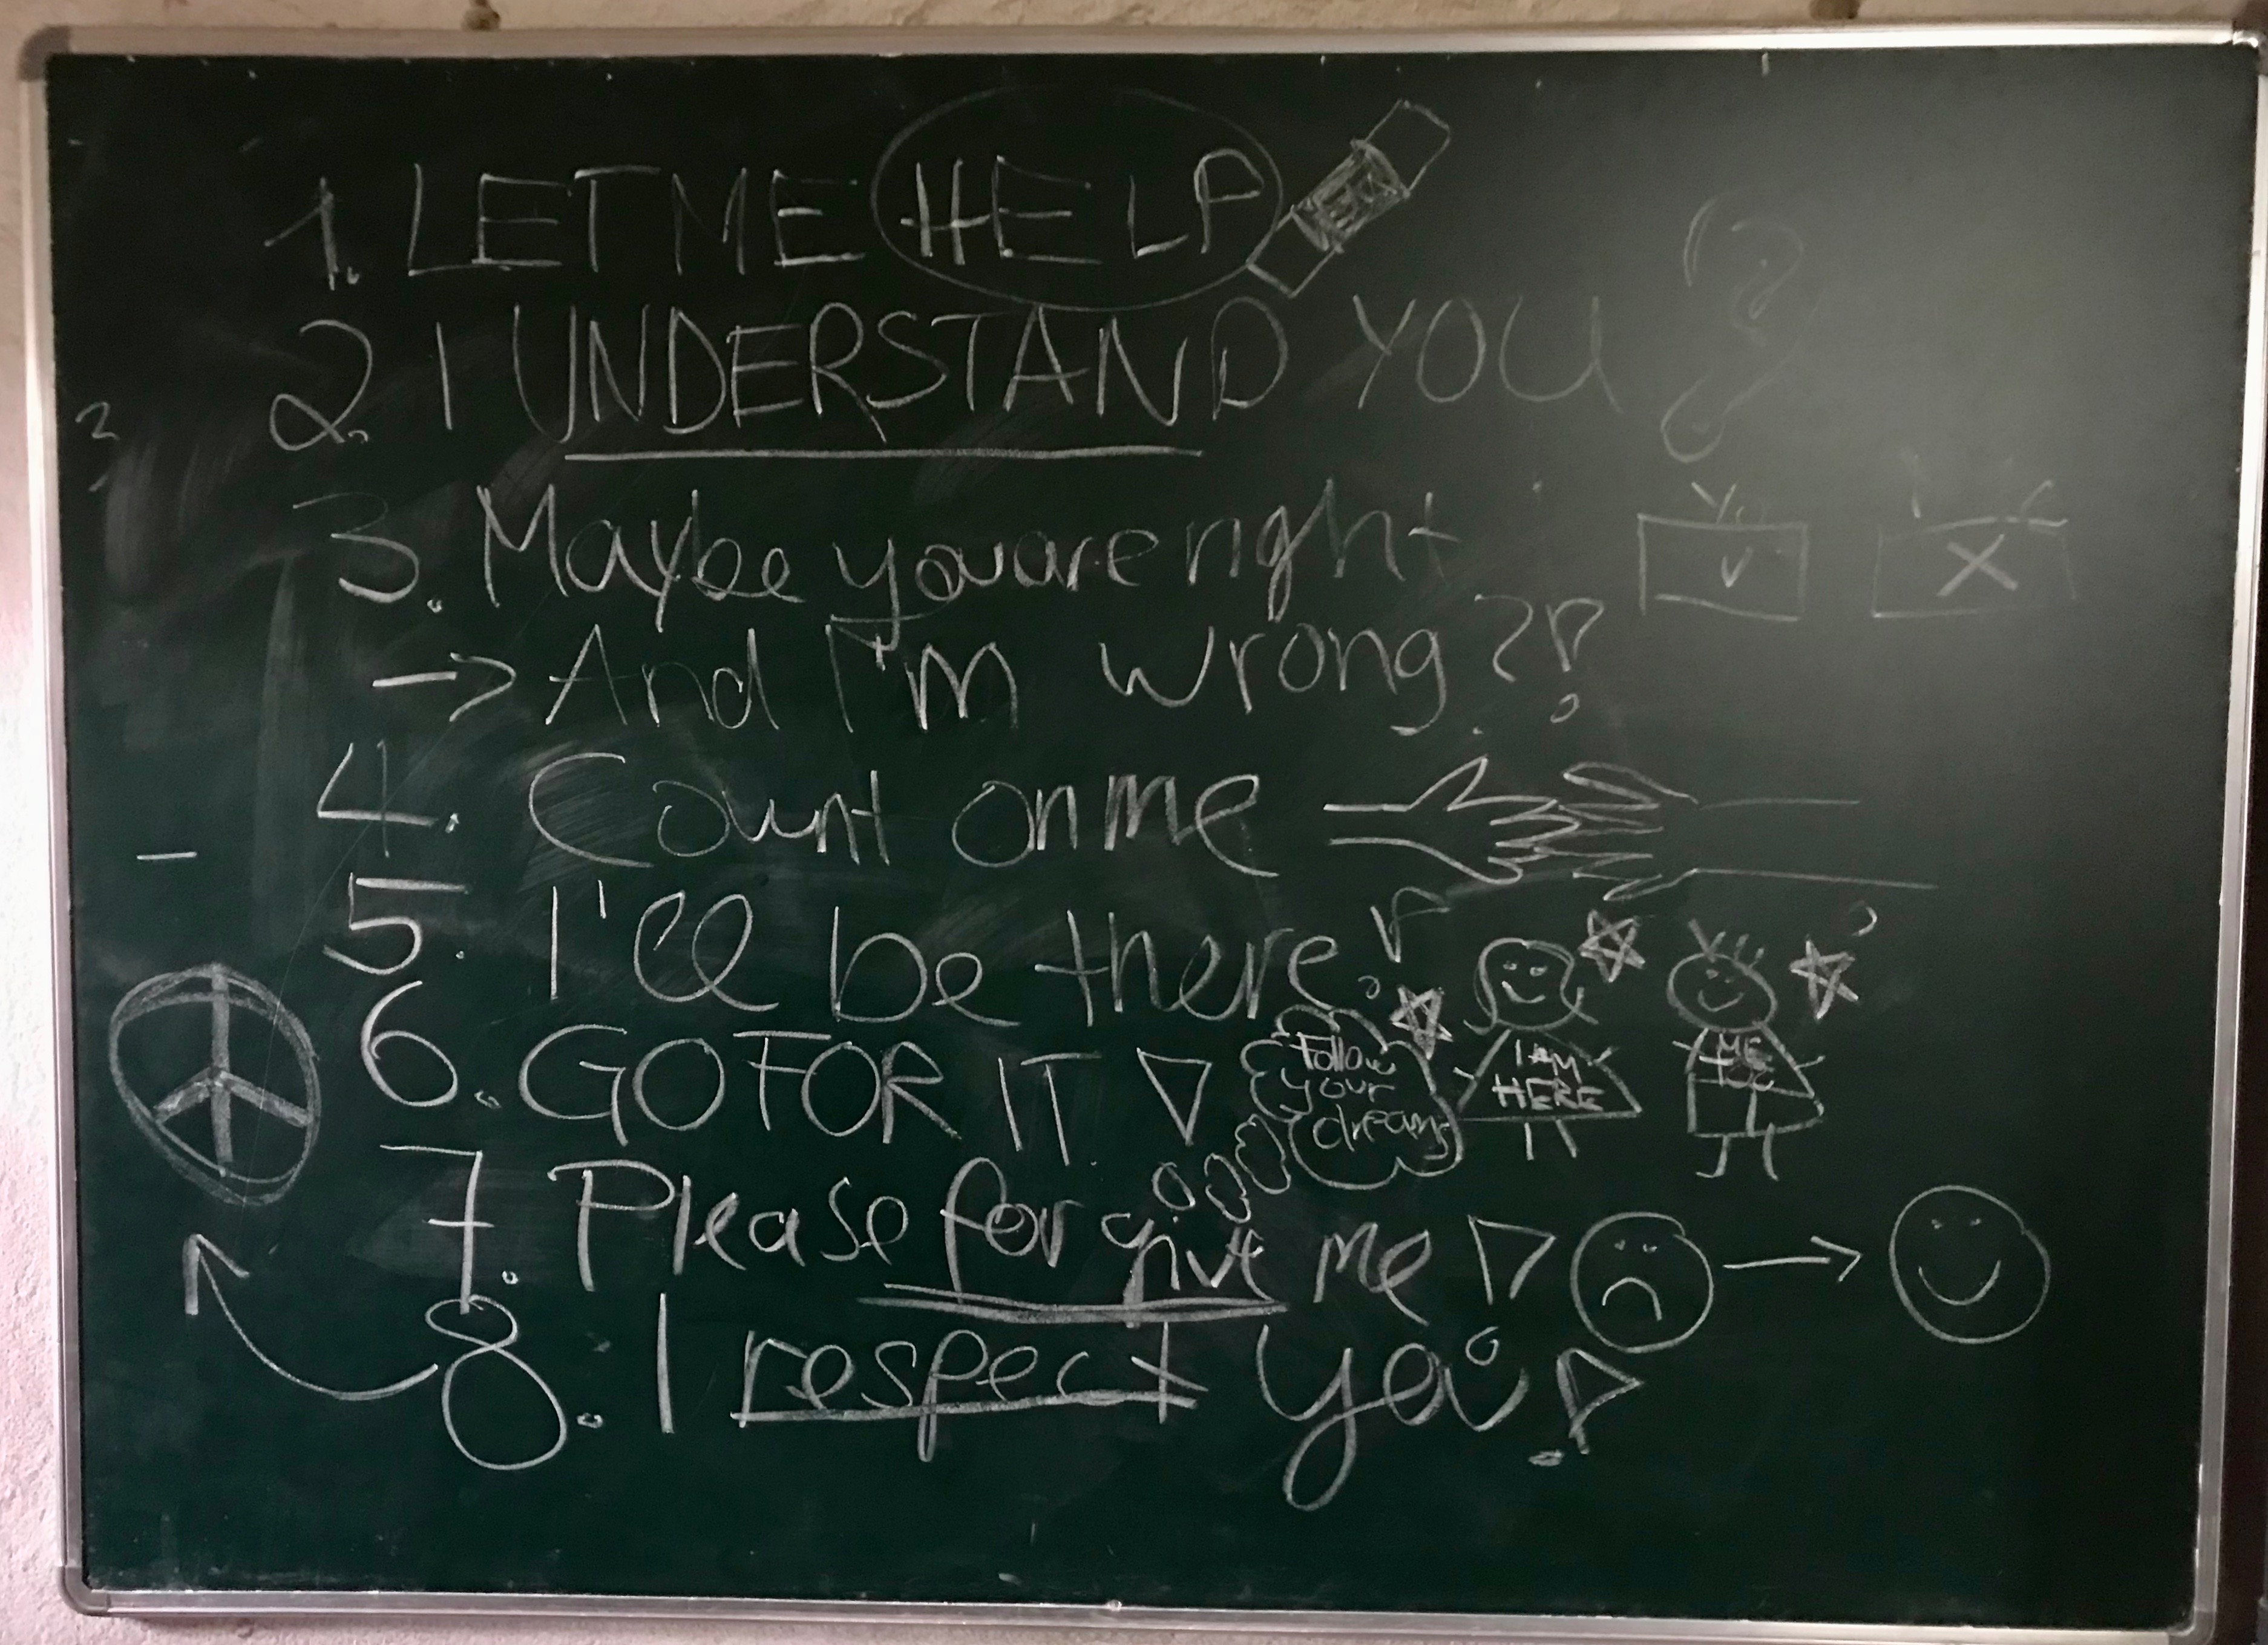 1. LET ME HELP
2. I UNDERSTAND YOU ?
3. Maybe you are right
→ And I'm wrong?!
4. Count on me
5. I'll be there!
I AM
HERE
ME
TOO
6. GO FOR IT!
Follow
your
dreams
7. Please forgive me!
8. I respect you!